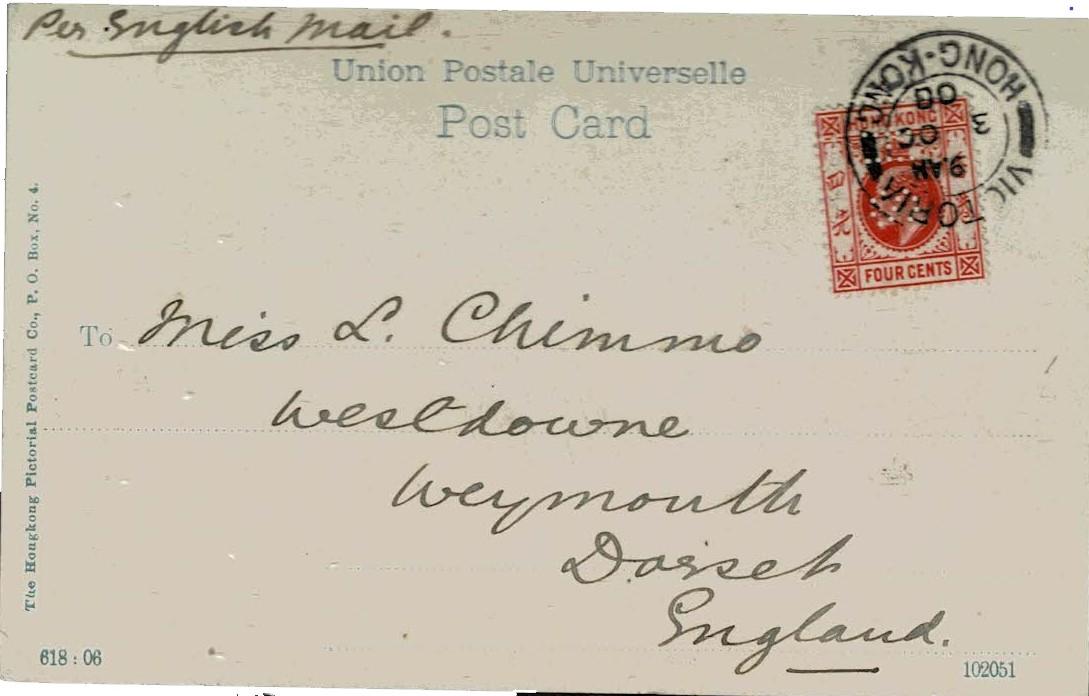 Per English Mail.
Union Postale Universelle
Post Card
VICTORIA HONG-KONG
9 AM
3 OC
08
HONG KONG
FOUR CENTS
The Hongkong Pictorial Postcard Co., P. O. Box, No. 4.
To Miss L. Chimmo
Westdowne
Weymouth
Dorset
England.
618 : 06
102051